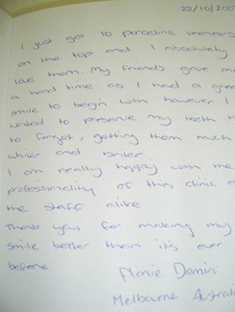 22/10/200
I just got 10 porcelain veneers
on the top and I absolutely
love them. My friends gave me
a hard time as I had a great
smile to begin with however I
wanted to preserve my teeth n
to forget, getting them much
whiter and
I am really happy with the
professionality of this clinic a
the staff alike.
Thank you for making my
smile better than it's ever
before
Domini
Melbourne Austral